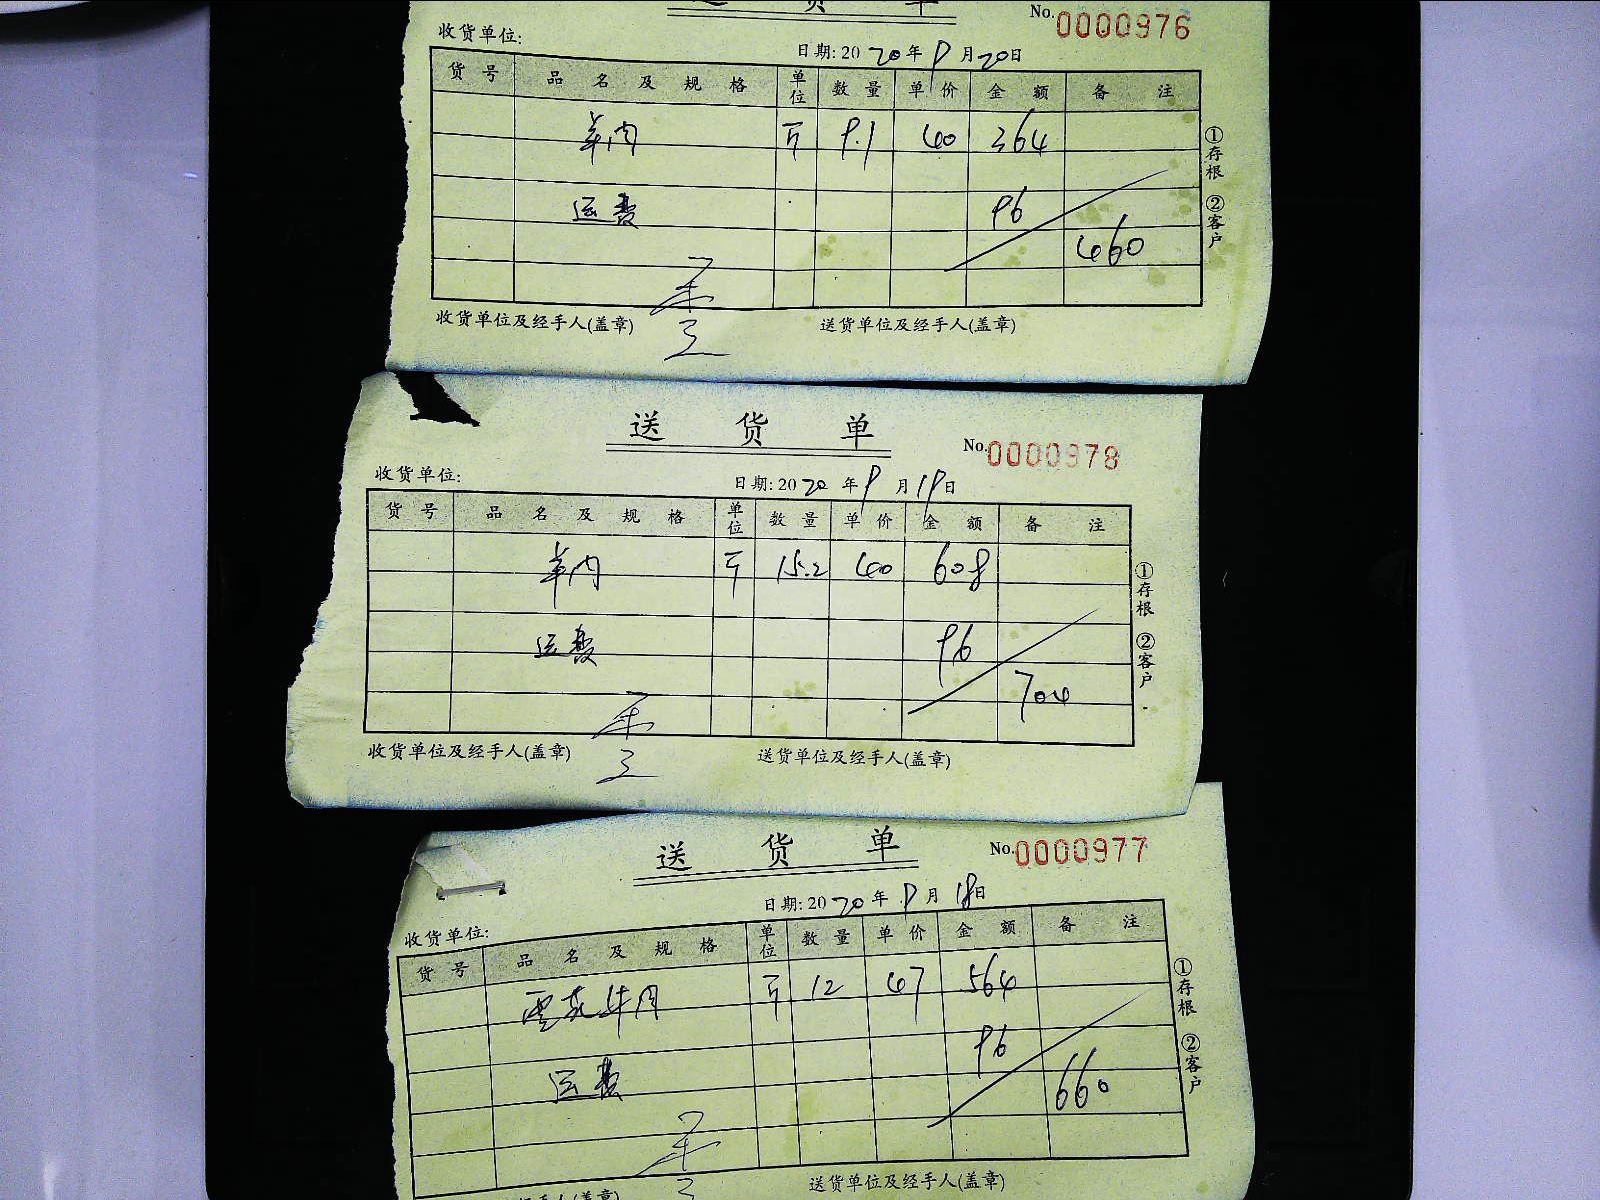 送 货 单
No. 0000976
收货单位:
日期: 2020年9月20日
货 号 品 名 及 规 格 单位 数 量 单 价 金 额 备 注
羊肉 斤 9.1 40 364
运费 96
460
①存根 ②客户
收货单位及经手人(盖章) 送货单位及经手人(盖章)
送 货 单
No. 0000978
收货单位:
日期: 2020年9月19日
货 号 品 名 及 规 格 单位 数 量 单 价 金 额 备 注
羊肉 斤 15.2 40 608
运费 96
704
①存根 ②客户
收货单位及经手人(盖章) 送货单位及经手人(盖章)
送 货 单
No. 0000977
日期: 2020年9月18日
收货单位:
货 号 品 名 及 规 格 单位 数 量 单 价 金 额 备 注
雪花牛肉 斤 12 47 564
运费 96
660
①存根 ②客户
经手人(盖章) 送货单位及经手人(盖章)